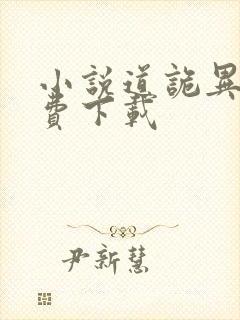 小說道詭異
費下載
尹新慧